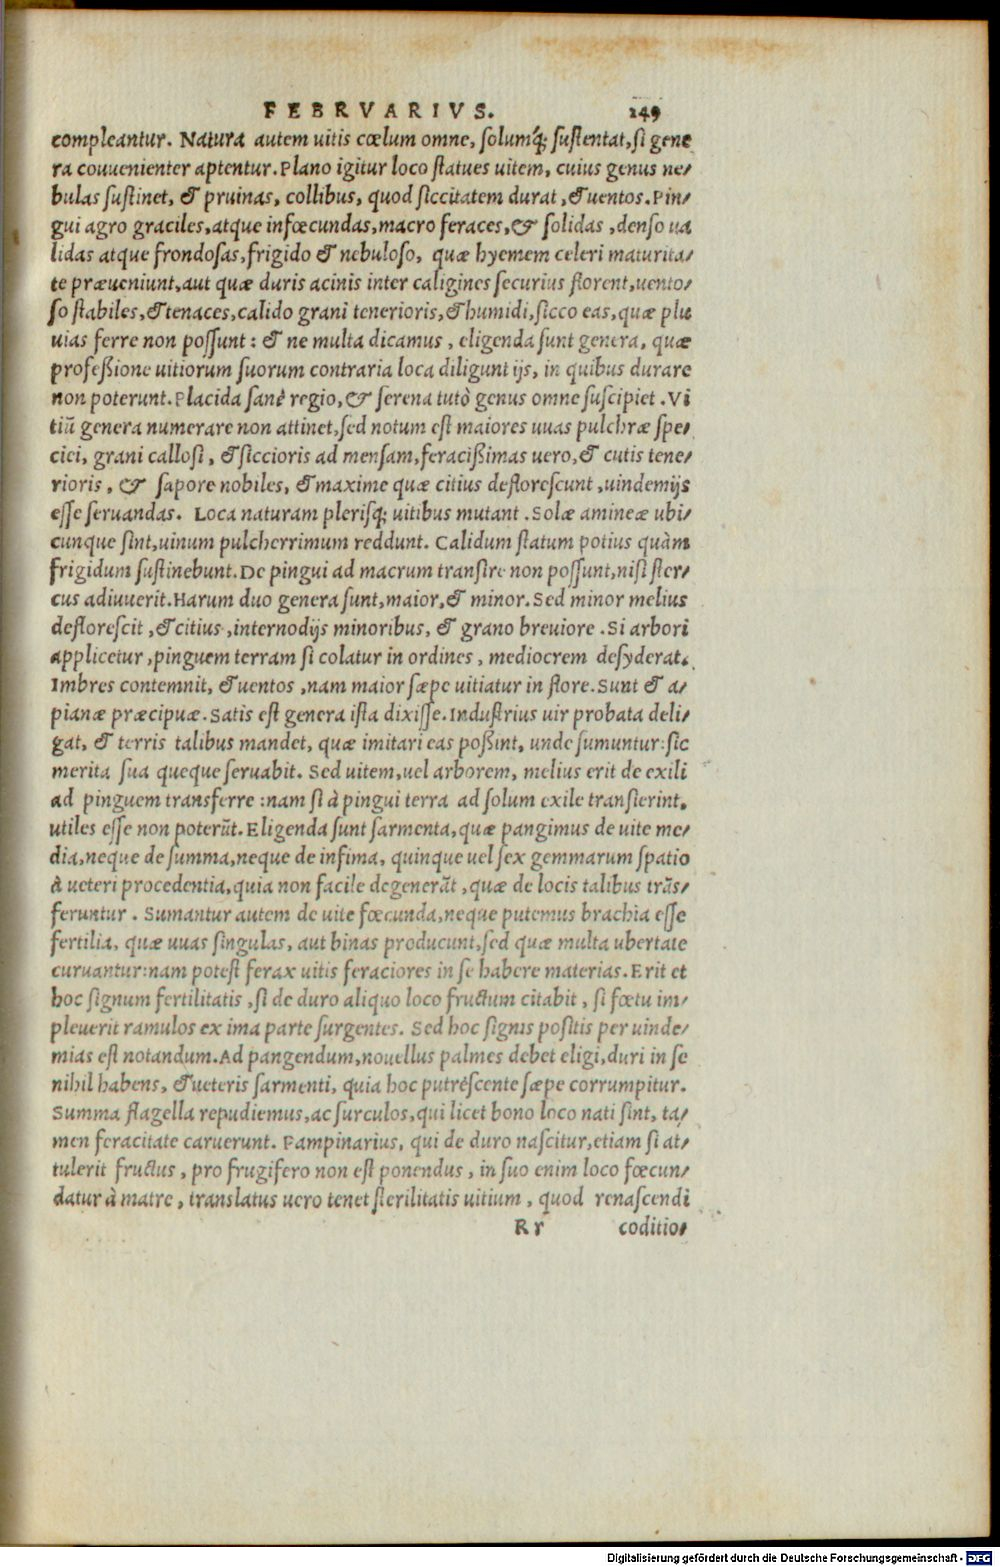 FEBRVARIVS. 249
compleantur. Natura autem uitis cœlum omne, solumq́; sustentat, si gene
ra couuenienter aptentur. Plano igitur loco statues uitem, cuius genus ne/
bulas sustinet, & pruinas, collibus, quod siccitatem durat, & uentos. Pin/
gui agro graciles, atque infœcundas, macro feraces, & solidas, denso ua
lidas atque frondosas, frigido & nebuloso, quæ hyemem celeri maturita/
te præueniunt, aut quæ duris acinis inter caligines securius florent, uento/
so stabiles, & tenaces, calido grani tenerioris, & humidi, sicco eas, quæ plu
uias ferre non possunt: & ne multa dicamus, eligenda sunt genera, quæ
professione uitiorum suorum contraria loca diligunt ijs, in quibus durare
non poterunt. Placida sanè regio, & serena tutò genus omne suscipiet. Vi
tiū genera numerare non attinet, sed notum est maiores uuas pulchræ spe/
ciei, grani callosi, & siccioris ad mensam, feracissimas uero, & cutis tene/
rioris, & sapore nobiles, & maxime quæ citius deflorescunt, uindemijs
esse seruandas. Loca naturam plerisq; uitibus mutant. Solæ amineæ ubi/
cunque sint, uinum pulcherrimum reddunt. Calidum statum potius quàm
frigidum sustinebunt. De pingui ad macrum transire non possunt, nisi ster/
cus adiuuerit. Harum duo genera sunt, maior, & minor. Sed minor melius
deflorescit, & citius, internodijs minoribus, & grano breuiore. Si arbori
applicetur, pinguem terram si colatur in ordines, mediocrem desyderat.
Imbres contemnit, & uentos, nam maior sæpe uitiatur in flore. Sunt & a/
pianæ præcipuæ. Satis est genera ista dixisse. Industrius uir probata deli/
gat, & terris talibus mandet, quæ imitari eas possint, unde sumuntur: sic
merita sua queque seruabit. Sed uitem, uel arborem, melius erit de exili
ad pinguem transferre: nam si à pingui terra ad solum exile transierint,
utiles esse non poterūt. Eligenda sunt sarmenta, quæ pangimus de uite me/
dia, neque de summa, neque de infima, quinque uel sex gemmarum spatio
à ueteri procedentia, quia non facile degenerāt, quæ de locis talibus trās/
feruntur. Sumantur autem de uite fœcunda, neque putemus brachia esse
fertilia, quæ uuas singulas, aut binas producunt, sed quæ multa ubertate
curuantur: nam potest ferax uitis feraciores in se habere materias. Erit et
hoc signum fertilitatis, si de duro aliquo loco fructum citabit, si fœtu im/
pleuerit ramulos ex ima parte surgentes. Sed hoc signis positis per uinde/
mias est notandum. Ad pangendum, nouellus palmes debet eligi, duri in se
nihil habens, & ueteris sarmenti, quia hoc putrèscente sæpe corrumpitur.
Summa flagella repudiemus, ac surculos, qui licet bono loco nati sint, ta/
men feracitate caruerunt. Pampinarius, qui de duro nascitur, etiam si at/
tulerit fructus, pro frugifero non est ponendus, in suo enim loco fœcun/
datur à matre, translatus uero tenet sterilitatis uitium, quod renascendi
Rr coditio/
Digitalisierung gefördert durch die Deutsche Forschungsgemeinschaft - DFG